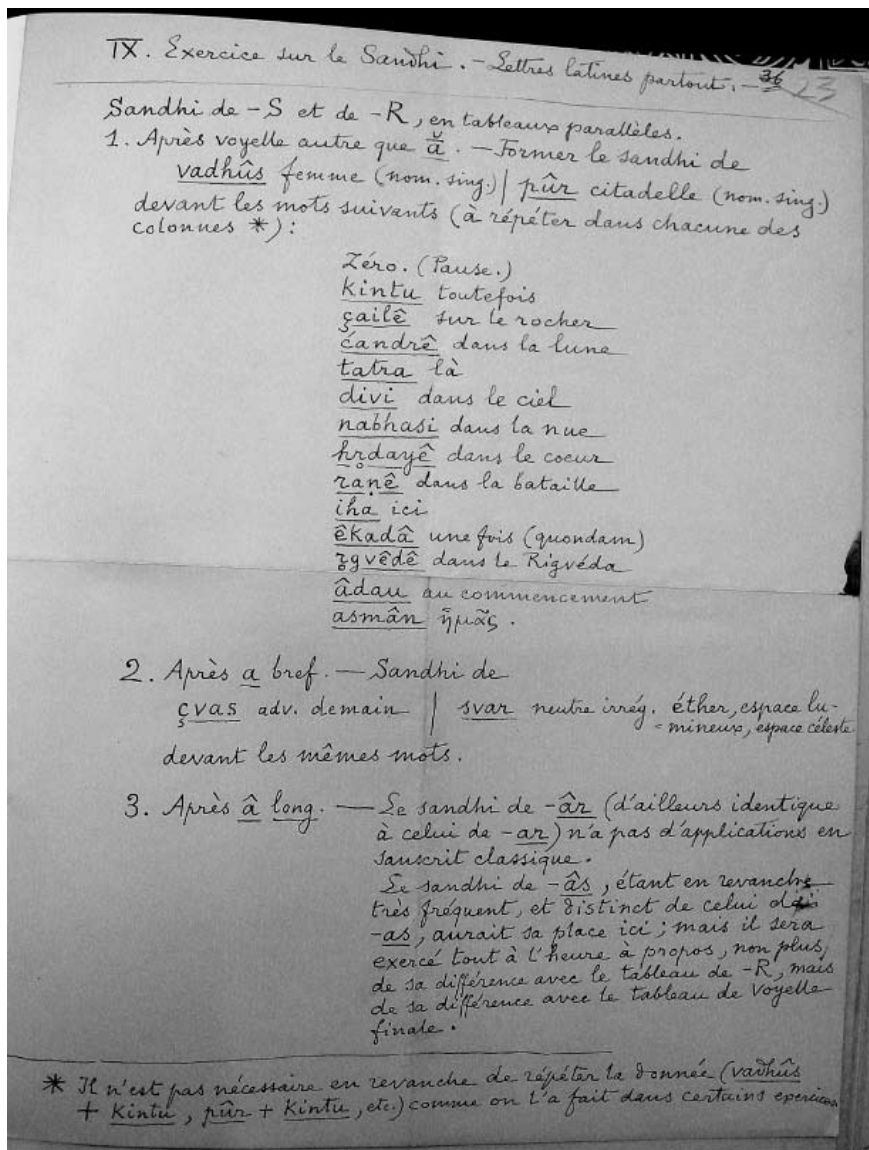 IX. Exercice sur le Sandhi. — Lettres latines partout. — 36 23
Sandhi de -S et de -R, en tableaux parallèles.
1. Après voyelle autre que ā̆. — Former le sandhi de
vadhûs femme (nom. sing.) | pûr citadelle (nom. sing.)
devant les mots suivants (à répéter dans chacune des
colonnes *):
Zéro. (Pause.)
kintu toutefois
çailê sur le rocher
ćandrê dans la lune
tatra là
divi dans le ciel
nabhasi dans la nue
hr̥dayê dans le coeur
raṇê dans la bataille
iha ici
êkadâ une fois (quondam)
r̥gvêdê dans le Rigvéda
âdau au commencement
asmân ἡμᾶς.
2. Après a bref. — Sandhi de
çvas adv. demain | svar neutre irrég. éther, espace lu-
= mineux, espace céleste
devant les mêmes mots.
3. Après â long. — Le sandhi de -âr (d'ailleurs identique
à celui de -ar) n'a pas d'applications en
sanscrit classique.
Le sandhi de -âs, étant en revanche
très fréquent, et distinct de celui de
-as, aurait sa place ici; mais il sera
exercé tout à l'heure à propos, non plus,
de sa différence avec le tableau de -R, mais
de sa différence avec le tableau de Voyelle
finale.
* Il n'est pas nécessaire en revanche de répéter la donnée (vadhûs
+ kintu, pûr + kintu, etc.) comme on l'a fait dans certains exercices.